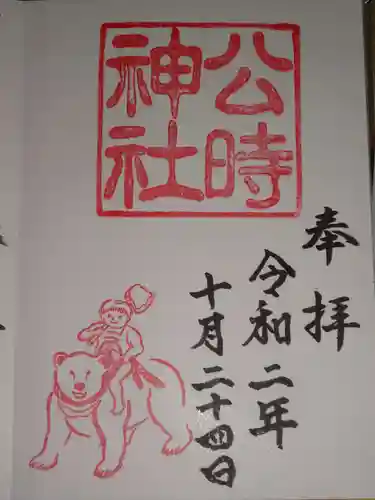 奉拝
令和二年
十月二十四日
公時
神社